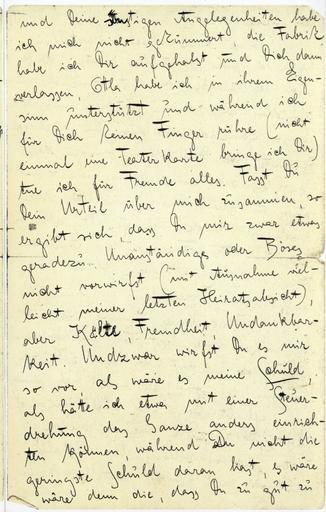 und Deine sonstigen Angelegenheiten habe
ich mich nicht gekümmert die Fabrik
habe ich Dir aufgehalst und Dich dann
verlassen, Ottla habe ich in ihrem Eigen-
sinn unterstützt und während ich
für Dich keinen Finger rühre (nicht
einmal eine Teaterkarte bringe ich Dir)
tue ich für Fremde alles. Fasst Du
Dein Urteil über mich zusammen, so
ergibt sich, dass Du mir zwar etwas
geradezu Unanständiges oder Böses
nicht vorwirfst (mit Ausnahme viel-
leicht meiner letzten Heiratsabsicht),
aber Kälte, Fremdheit, Undankbar-
keit. Undzwar wirfst Du es mir
so vor, als wäre es meine Schuld,
als hätte ich etwa mit einer Steuer-
drehung das Ganze anders einrich-
ten können, während Du nicht die
geringste Schuld daran hast, es wäre
wäre denn die, dass Du zu gut zu